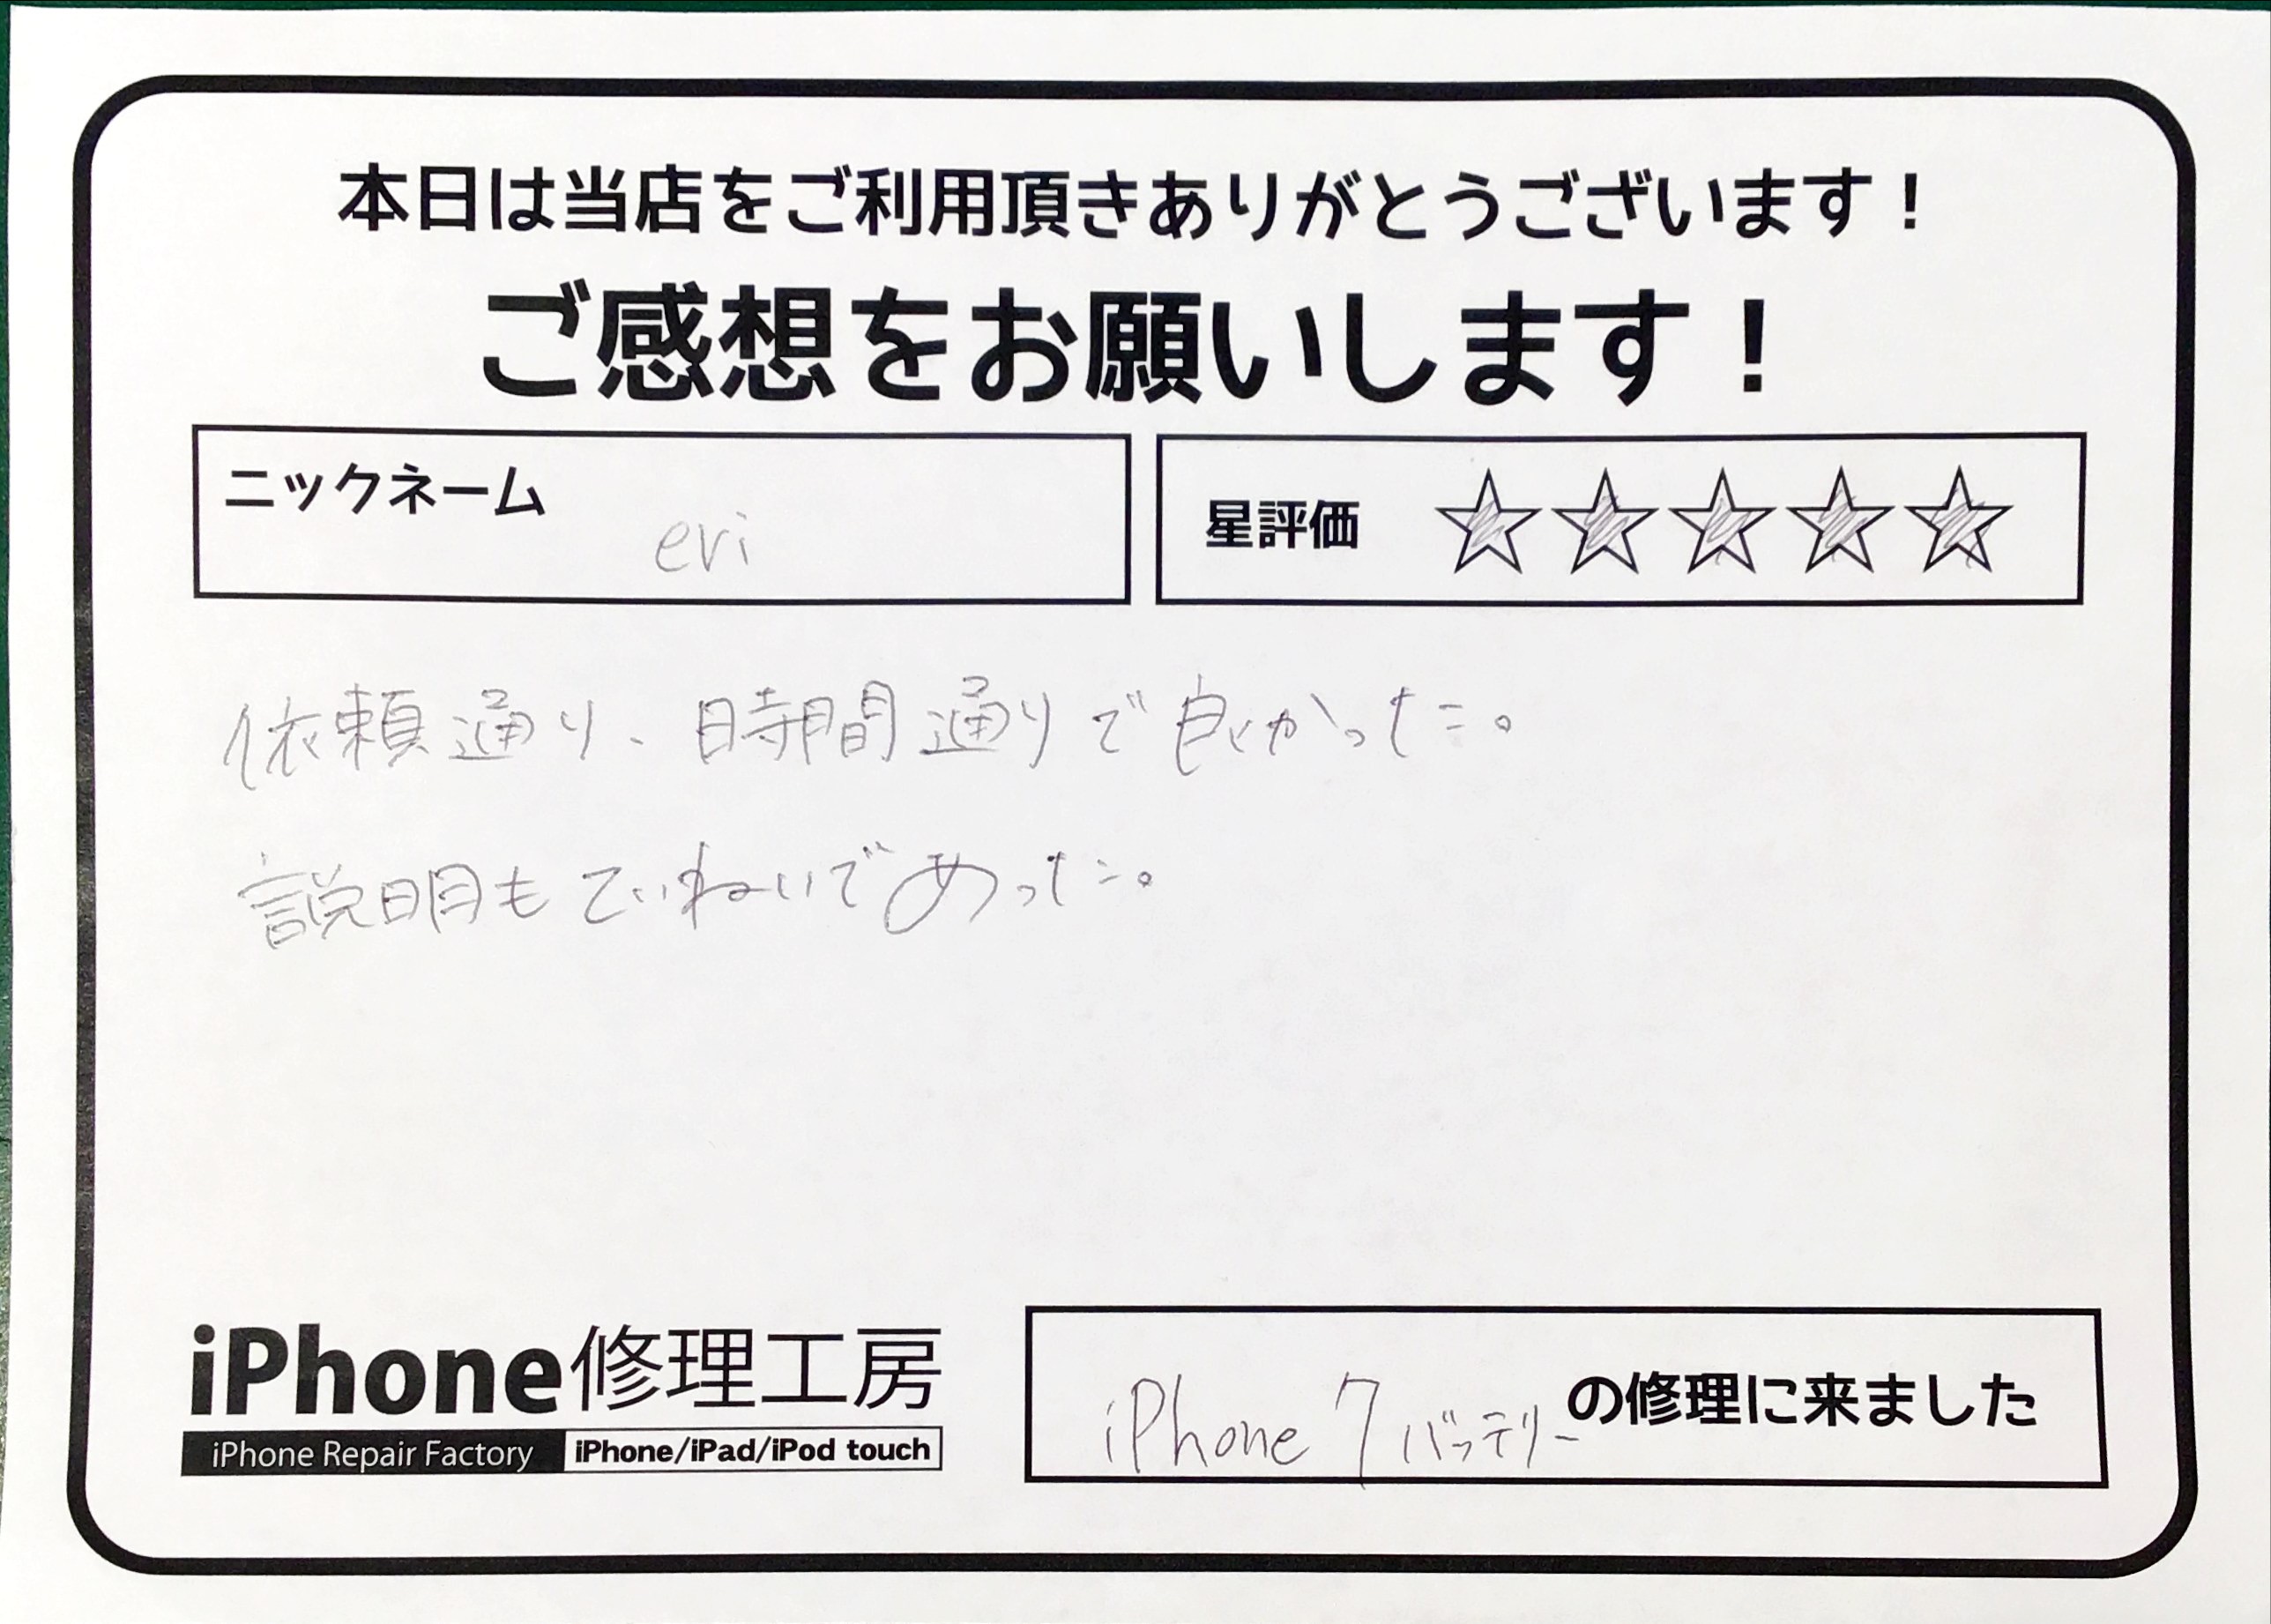 本日は当店をご利用頂きありがとうございます！
ご感想をお願いします！
ニックネーム
eri
星評価 ☆☆☆☆☆
依頼通り、時間通りで良かった。
説明もていねいであった。
iPhone修理工房
iPhone Repair Factory iPhone/iPad/iPod touch
iPhone 7 バッテリーの修理に来ました